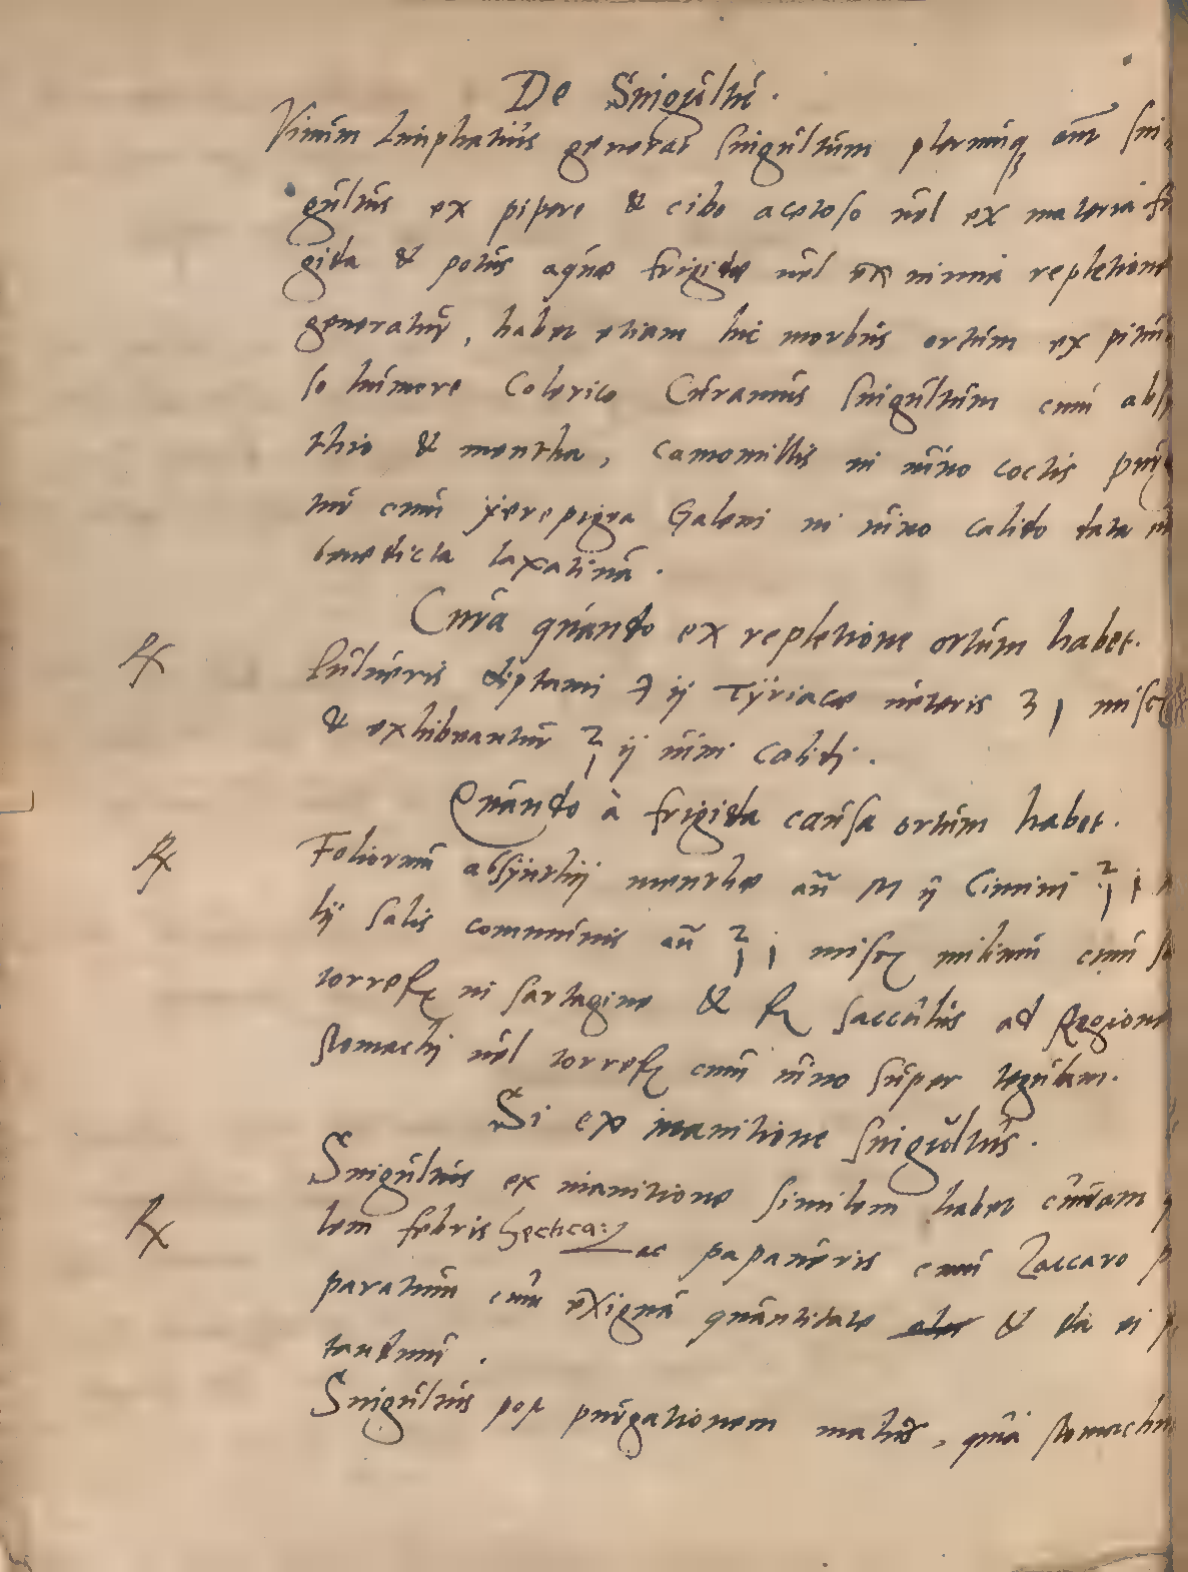 De Singultu.
Vinum limphatum generat singultum plerumq; aūt sin-
gultus ex pipere & cibo acetoso uel ex materia fri
gida & potus aquæ frigidæ uel ex nimia repletione
generatur, habet etiam hic morbus ortum ex pitui
so humore Colerico Curamus singultum cum absy
thio & mentha, camomillis in uino coctis purga
tur cum yerepigra Galeni in uino calido data
benedicta laxatiua.
Cura quando ex repletione ortum habet.
℞ Pulueris diptami ℈ ij Tyriacæ ueteris ʒ j misc
& exhibeantur ℥ ij uini calidi.
Quando à frigida causa ortum habet.
℞ Foliorum absynthij menthæ añ M ij Cimini ℥ j
lij salis communis añ ℥ j misc milium cum
torref in sartagine & f sacculus ad Regione
stomachi uel torref cum uino super tegulam.
Si ex inanitione singultus.
Singultus ex inanitione similem habet curam
℞ lem febris hectica: Lac papaueris cum Zaccaro
paratum cum exigua quantitate & da ei
tandum.
Singultus post purgationem malus, quia stomachu